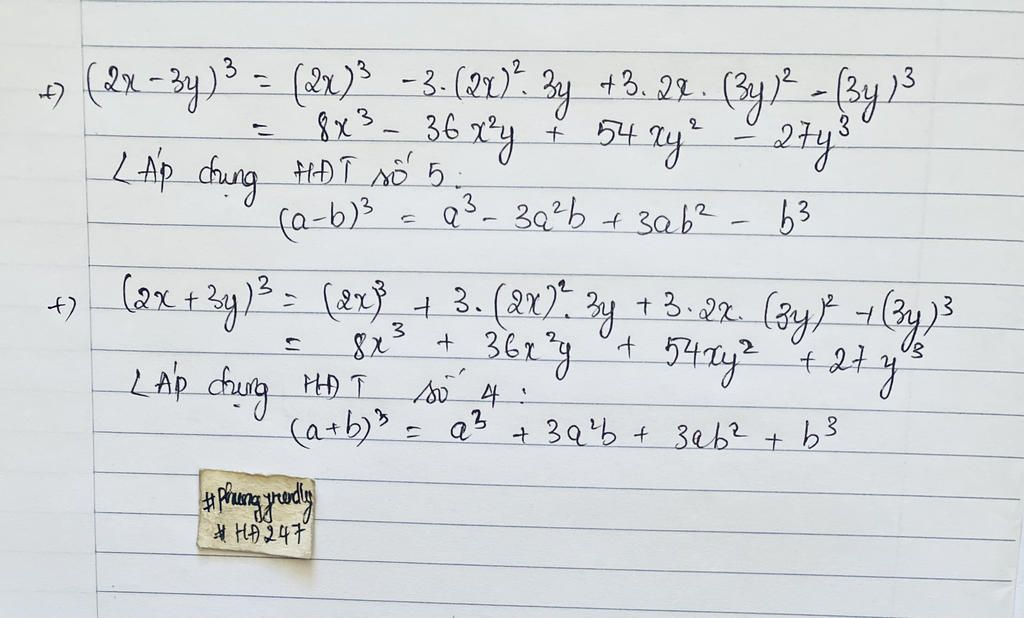 +) (2x - 3y)³ = (2x)³ - 3. (2x)². 3y + 3. 2x. (3y)² - (3y)³
= 8x³ - 36x²y + 54xy² - 27y³
L Áp dụng HĐT số 5:
(a-b)³ = a³ - 3a²b + 3ab² - b³
+) (2x + 3y)³ = (2x)³ + 3. (2x)². 3y + 3. 2x. (3y)² + (3y)³
= 8x³ + 36x²y + 54xy² + 27y³
L Áp dụng HĐT số 4:
(a+b)³ = a³ + 3a²b + 3ab² + b³
# HĐ247